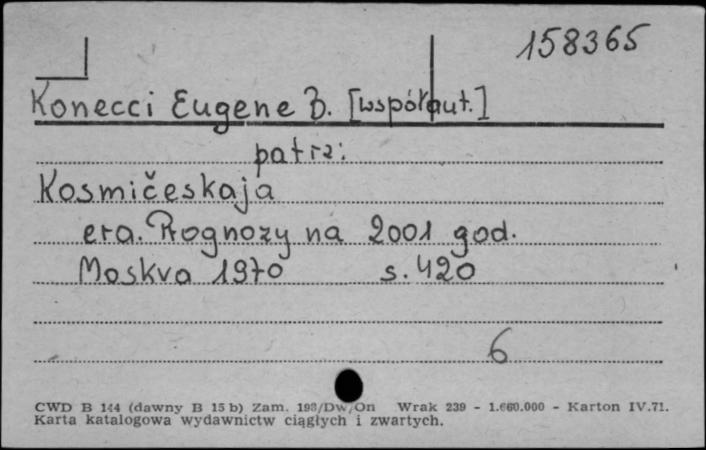 158365
Konecci Eugene B. [współaut.]
patrz:
Kosmičeskaja
era. Prognozy na 2001 god.
Moskva 1970 s. 420
6
CWD B 144 (dawny B 15 b) Zam. 193/Dw/On Wrak 239 - 1.660.000 - Karton IV.71.
Karta katalogowa wydawnictw ciągłych i zwartych.